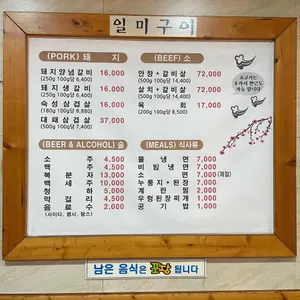 일미구이
(PORK) 돼 지
돼지양념갈비 16,000
(250g 100g당 6,400)
돼지생갈비 16,000
(250g 100g당 6,400)
숙성삼겹살 16,000
대패삼겹살 37,000
(BEEF) 소
안창+갈비살 72,000
(500g 100g당 14,400)
살치+갈비살 72,000
(500g 100g당 14,400)
육 회 17,000
(200g 100g당 8,500)
소고기는
추가시 반근도
가능 합니다
(BEER & ALCOHOL) 술
소 주 4,500
맥 주 4,500
복 분 자 13,000
백 세 주 10,000
청 하 5,000
막 걸 리 4,500
음 료 수 2,000
(사이다, 콜라, 환타)
(MEALS) 식사류
물 냉 면 7,000
비 빔 냉 면 7,000
소 면 7,000 (계절)
누룽지+된장
계 란 찜 2,000
우렁된장찌개 1,000
공 기 밥 1,000
남은 음식은 포장 됩니다